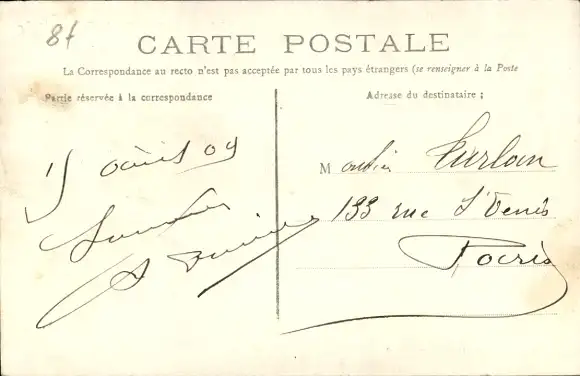 8f
CARTE POSTALE
La Correspondance au recto n'est pas acceptée par tous les pays étrangers (se renseigner à la Poste
Partie réservée à la correspondance
Adresse du destinataire ;
15 09
Monsieur Furlan
133 rue St Denis
Paris